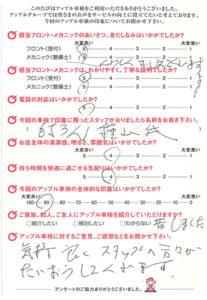 このたびはアップル車検をご利用いただきありがとうございました。
アップルグループでは皆さまの声をサービスの向上に役立てたいと考えております。
今回のアップル車検の感想についてお聞かせ下さい。
担当フロント・メカニックのあいさつ、身だしなみはいかがでしたか?
大変良い 大変悪い
フロント(受付) 5 4 3 2 1
メカニック(整備士) 5 4 3 2 1
担当フロント・メカニックは、わかりやすく、丁寧な説明でしたか?
大変良い 大変悪い
フロント(受付) 5 4 3 2 1
メカニック(整備士) 5 4 3 2 1
電話の対応はいかがでしたか?
大変良い 大変悪い
5 4 3 2 1
今回の車検で印象に残ったスタッフがおりましたら名前をお聞かせ下さい。
お店全体の清潔感、明るさ、雰囲気はいかがでしたか?
大変良い 大変悪い
5 4 3 2 1
待ち時間を快適に過ごせる気配りはいかがでしたか?
大変良い 大変悪い
5 4 3 2 1
今回のアップル車検の全体的な印象はいかがでしたか?
大変良い 大変悪い
100 90 80 70 60 50 40 30 20 10 0
ご家族、知人、ご友人にアップル車検を紹介していただけますか?
紹介したい 検討したい わからない
アップル車検に対するご意見、ご感想などをお聞かせ下さい。
気持 よく スタッフ
アンケートのご協力ありがとうございました。